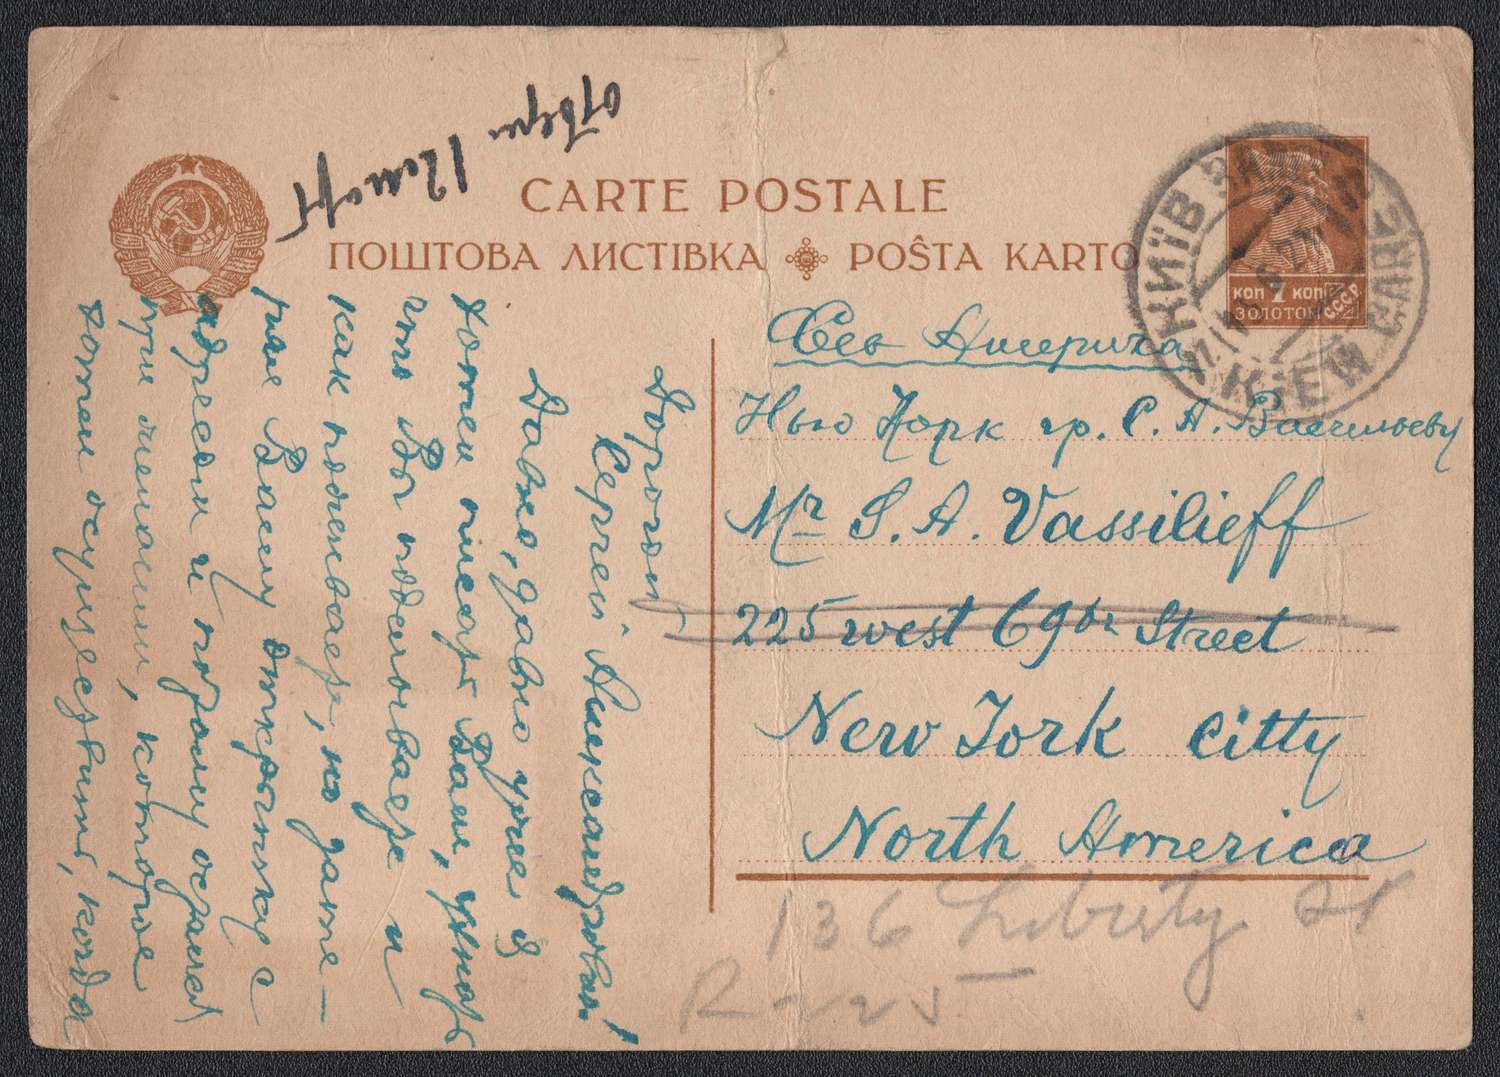 CARTE POSTALE
ПОШТОВА ЛИСТІВКА POŜTA KARTO
коп 7 коп
ЗОЛОТОМ
СССР
КИЇВ
KIEW
Сев Америка
Нью Йорк гр. С. А. Васильеву
Mr S. A. Vassilieff
225 west 69th Street
New York Citty
North America
136 Liberty St
R 225
Дорогой
Сергей Александрович!
Давно, давно уже я
хотел писать Вам, узнать
что Вы поделываете и
как поживаете, но затерял
Вашу открытку с
адресом и потому остался
при желании, которое
хотел осуществить, когда
ответ 12 март